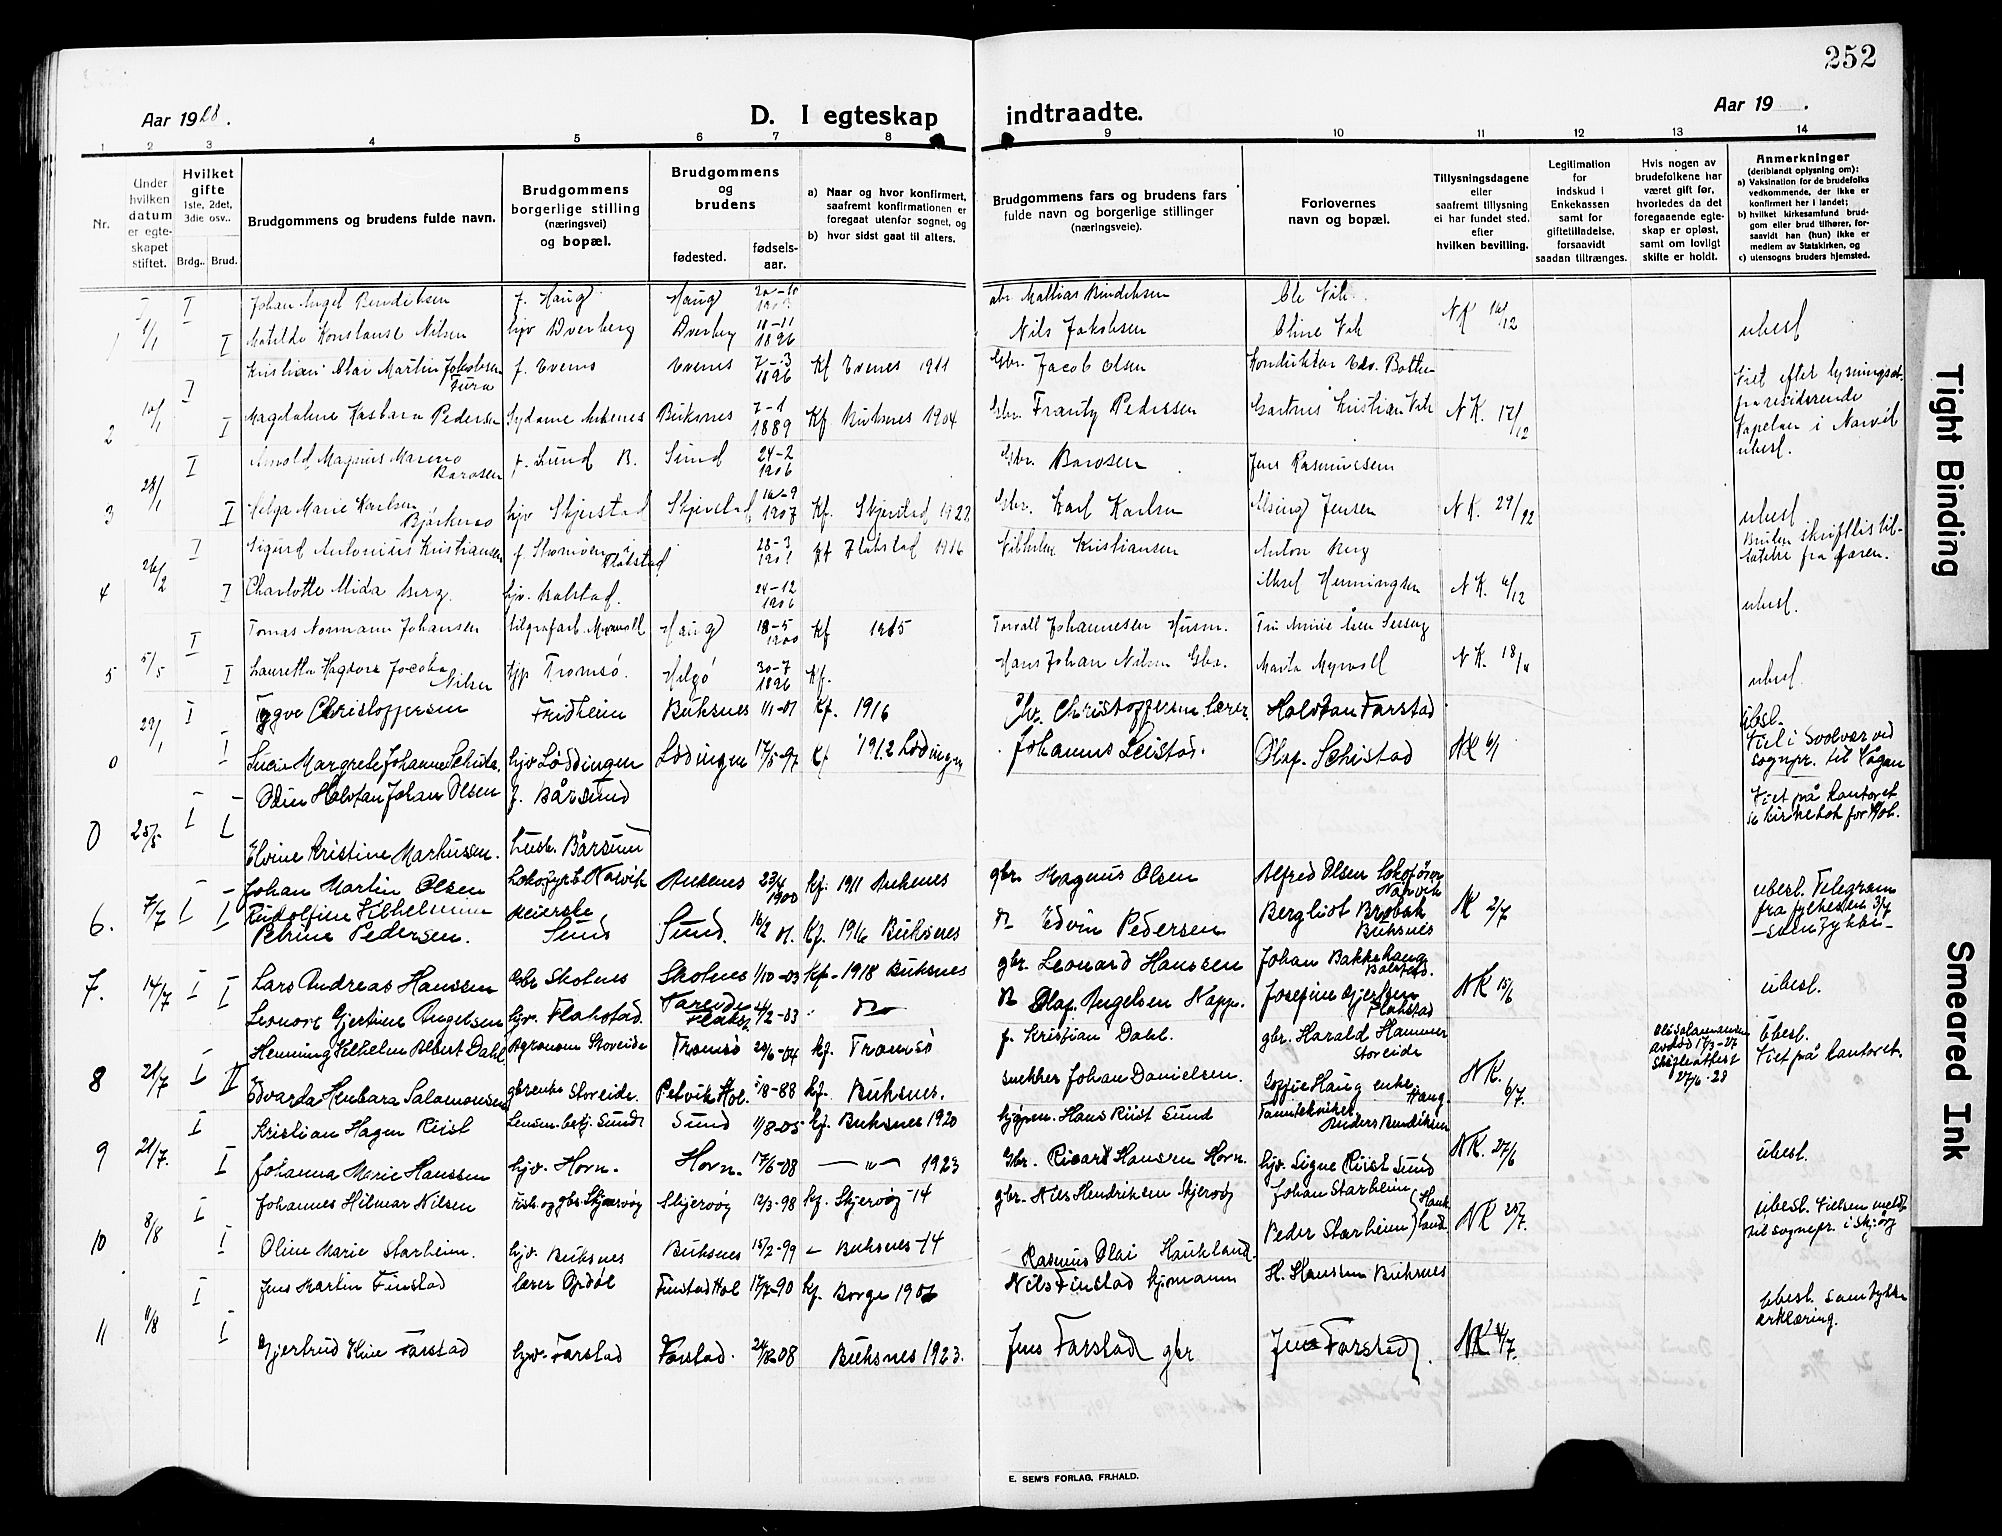 252
Aar 1928.
D. I egteskap indtraadte.
Aar 19 .
1 2 3 4 5 6 7 8 9 10 11 12 13 14
Nr.
Under hvilken datum er egteskapet stiftet.
Hvilket gifte 1ste, 2det, 3die osv..
Brdg.. Brud.
Brudgommens og brudens fulde navn.
Brudgommens borgerlige stilling (næringsvei) og bopæl.
Brudgommens og brudens
fødested. fødselsaar.
a) Naar og hvor konfirmert, saafremt konfirmationen er foregaat utenfor sognet, og
b) hvor sidst gaat til alters.
Brudgommens fars og brudens fars fulde navn og borgerlige stillinger (næringsveie).
Forlovernes navn og bopæl.
Tillysningsdagene eller saafremt tillysning ei har fundet sted. efter hvilken bevilling.
Legitimation for indskud i Enkekassen samt for giftetilladelse, forsaavidt saadan tiltrænges.
Hvis nogen av brudefolkene har været gift før, hvorledes da det foregaaende egteskap er opløst, samt om lovligt skifte er holdt.
Anmerkninger (deriblandt oplysning om):
a) Vaksination for de brudefolks vedkommende, der ikke er konfirmert her i landet;
b) hvilket kirkesamfund brudgom eller brud tilhører, forsaavidt han (hun) ikke er medlem av Statskirken, og
c) utensogns bruders hjemsted.
I Johan Angel Bendiksen f. Haug Haug 20-10 1903 Mathias Bendiksen Ole Vik NK 16/12
1 1/1 I Matilde Konstanse Nilsen hjv Dverberg Dverberg 18-11 1896 Nils Jakobsen Oline Vik ubesl
I Kristian Olai Martin Jakobsen f. Evenes Evenes 7-3 1896 Kf Evenes 1911 Gbr. Jacob Olsen Konduktør Edv. Bothen Viet efter lysningsat. fra residerende
2 10/1 I Magdalene Kasbara Pedersen Buksnes 7-1 1889 Kf Buksnes 1904 Gbr. Frantz Pedersen Kristian Vik NK. 17/12 Kapelan i Narvik ubesl.
I Arnold Magnus Mareno Barosen f. Sund B. Sund 24-2 1906 Gbr. Barosen Jens Rasmussen
3 28/1 I Helga Marie Karlsen hjv Skjerstad Skjerstad 10-9 1907 Kf. Skjerstad 1922 Gbr. Karl Karlsen Alsing Jensen NK. 29/12 ubesl
I Sigurd Antonius Kristiansen f. Flakstad 28-3 1901 Kf Flakstad 1916 Vilhelm Kristiansen Anton Berg Bruden skriftlig tillatelse fra faren.
4 26/2 I Charlotte Alida Berg. hjv. Balstad. 24-12 1906 Aksel Henningsen NK 6/12 ubesl.
I Tomas Normann Johansen Haug 18-5 1900 Kf 1915 Torvall Johannesen Husm.
5 5/5 I Lauretta Hagvora Jacoba Nilsen hjp Tromsø. Helgø 30-7 1896 Kf. Hans Johan Nilsen Gbr. Marta Myrvoll NK. 18/4 ubesl.
I Trygve Christoffersen Fridheim Buksnes 1/1-01 Kf. 1916 Chr. Christoffersen lærer Halvdan Farstad Ubsl.
0 29/1 I Lucie Margrete Johanne Schistad hjv Lødingen Lødingen 17/5-97 Kf 1912 Lødingen Johannes Leistad. Olaf. Schistad NK 6/1 Viet i Svolvær ved sognpr. til Vågan
I Odin Halvdan Johan Olsen f. Bårsund Viet på kontoret
0 25/5 I Elvine Kristine Markussen. hush. Bårsund se kirkebok for Hol.
Johan Martin Olsen Lokofyrb. Narvik Ankenes 23/4 1900 kf. 1911 Ankenes gbr. Magnus Olsen Alfred Olsen Lokofører Narvik ubesl. Telegram
6. 7/7 I I Rudolfine Vilhelmine Petrine Pedersen. meierske Sund Sund. 16/2 01. Kf. 1916 Buksnes Edvin Pedersen Bergliot Brobak Buksnes NK 2/7 fra fylkesm 3/7 -samtykke-
7. 14/7 I I Lars Andreas Hanssen Gbr Skotnes Skotnes 1/10-03 Kf- 1918 Buksnes gbr. Leonard Hanssen Johan Bakkehaug Balstad. NK 15/6 ubesl.
Leonore Gjertine Angelsen hjv. Flakstad. Flakst. 4/2-03 Olaf Angelsen Napp. Josefine Gjertsen Flakstad
I Henning Vilhelm Albert Dahl Agronom Storeide Tromsø 20/6-04 kf. Tromsø f. Kristian Dahl. gbr. Harald Hammer Storeide Ole Salamonsen avdød 17/3-27 Skifteattest 27/6-28 Ubesl. Viet på kontoret.
8 21/7 II Edvarda Henbara Salamonsen gbrenke Storeide. Petvik Hol. 1/8-88 kf. Buksnes. snekker Johan Danielsen. Soffie Haug enke Haug NK. 6/7.
I Kristian Hagen Riist Lensm.betj. Sund Sund 11/8-05 kf. Buksnes 1920 kjøpm. Hans Riist Sund Tanntekniker Anders Bendiksen
9 21/7. I Johanna Marie Hanssen hjv. Horn. Horn. 17/6-08 —"— 1923 Gbr. Ricart Hansen Horn. hjv. Signe Riist Sund NK. 27/6 ubesl.
I Johannes Hilmar Nilsen Fisk. og gbr. Skjervøy Skjervøy 12/3-98 kf. Skjervøy -14 gbr. Nils Hendriksen Skjervøy Johan Starheim ubesl. Vielsen meldt
10 8/8 I Oline Marie Starheim. hjv. Buksnes Buksnes 15/2-99 - Buksnes -14 Rasmus Olai Haukland. Peder Starheim Haukland NK 25/7. til sognepr. i Skjørv
I Jens Martin Finstad lærer Gjedøl Finstad Hol 17/7-90 kf. Borge 1906 Nils Finstad kjømann H. Hanssen Buksnes ubesl. samtykke erklæring.
11 11/8 I Gjertrud Kline Farstad hjv. Farstad Farstad. 24/12 08 Buksnes 1923. Jens Farstad gbr Jens Farstad. NK 4/7.
E. SEM'S FORLAG, FR.HALD.
Tight Binding
Smeared Ink